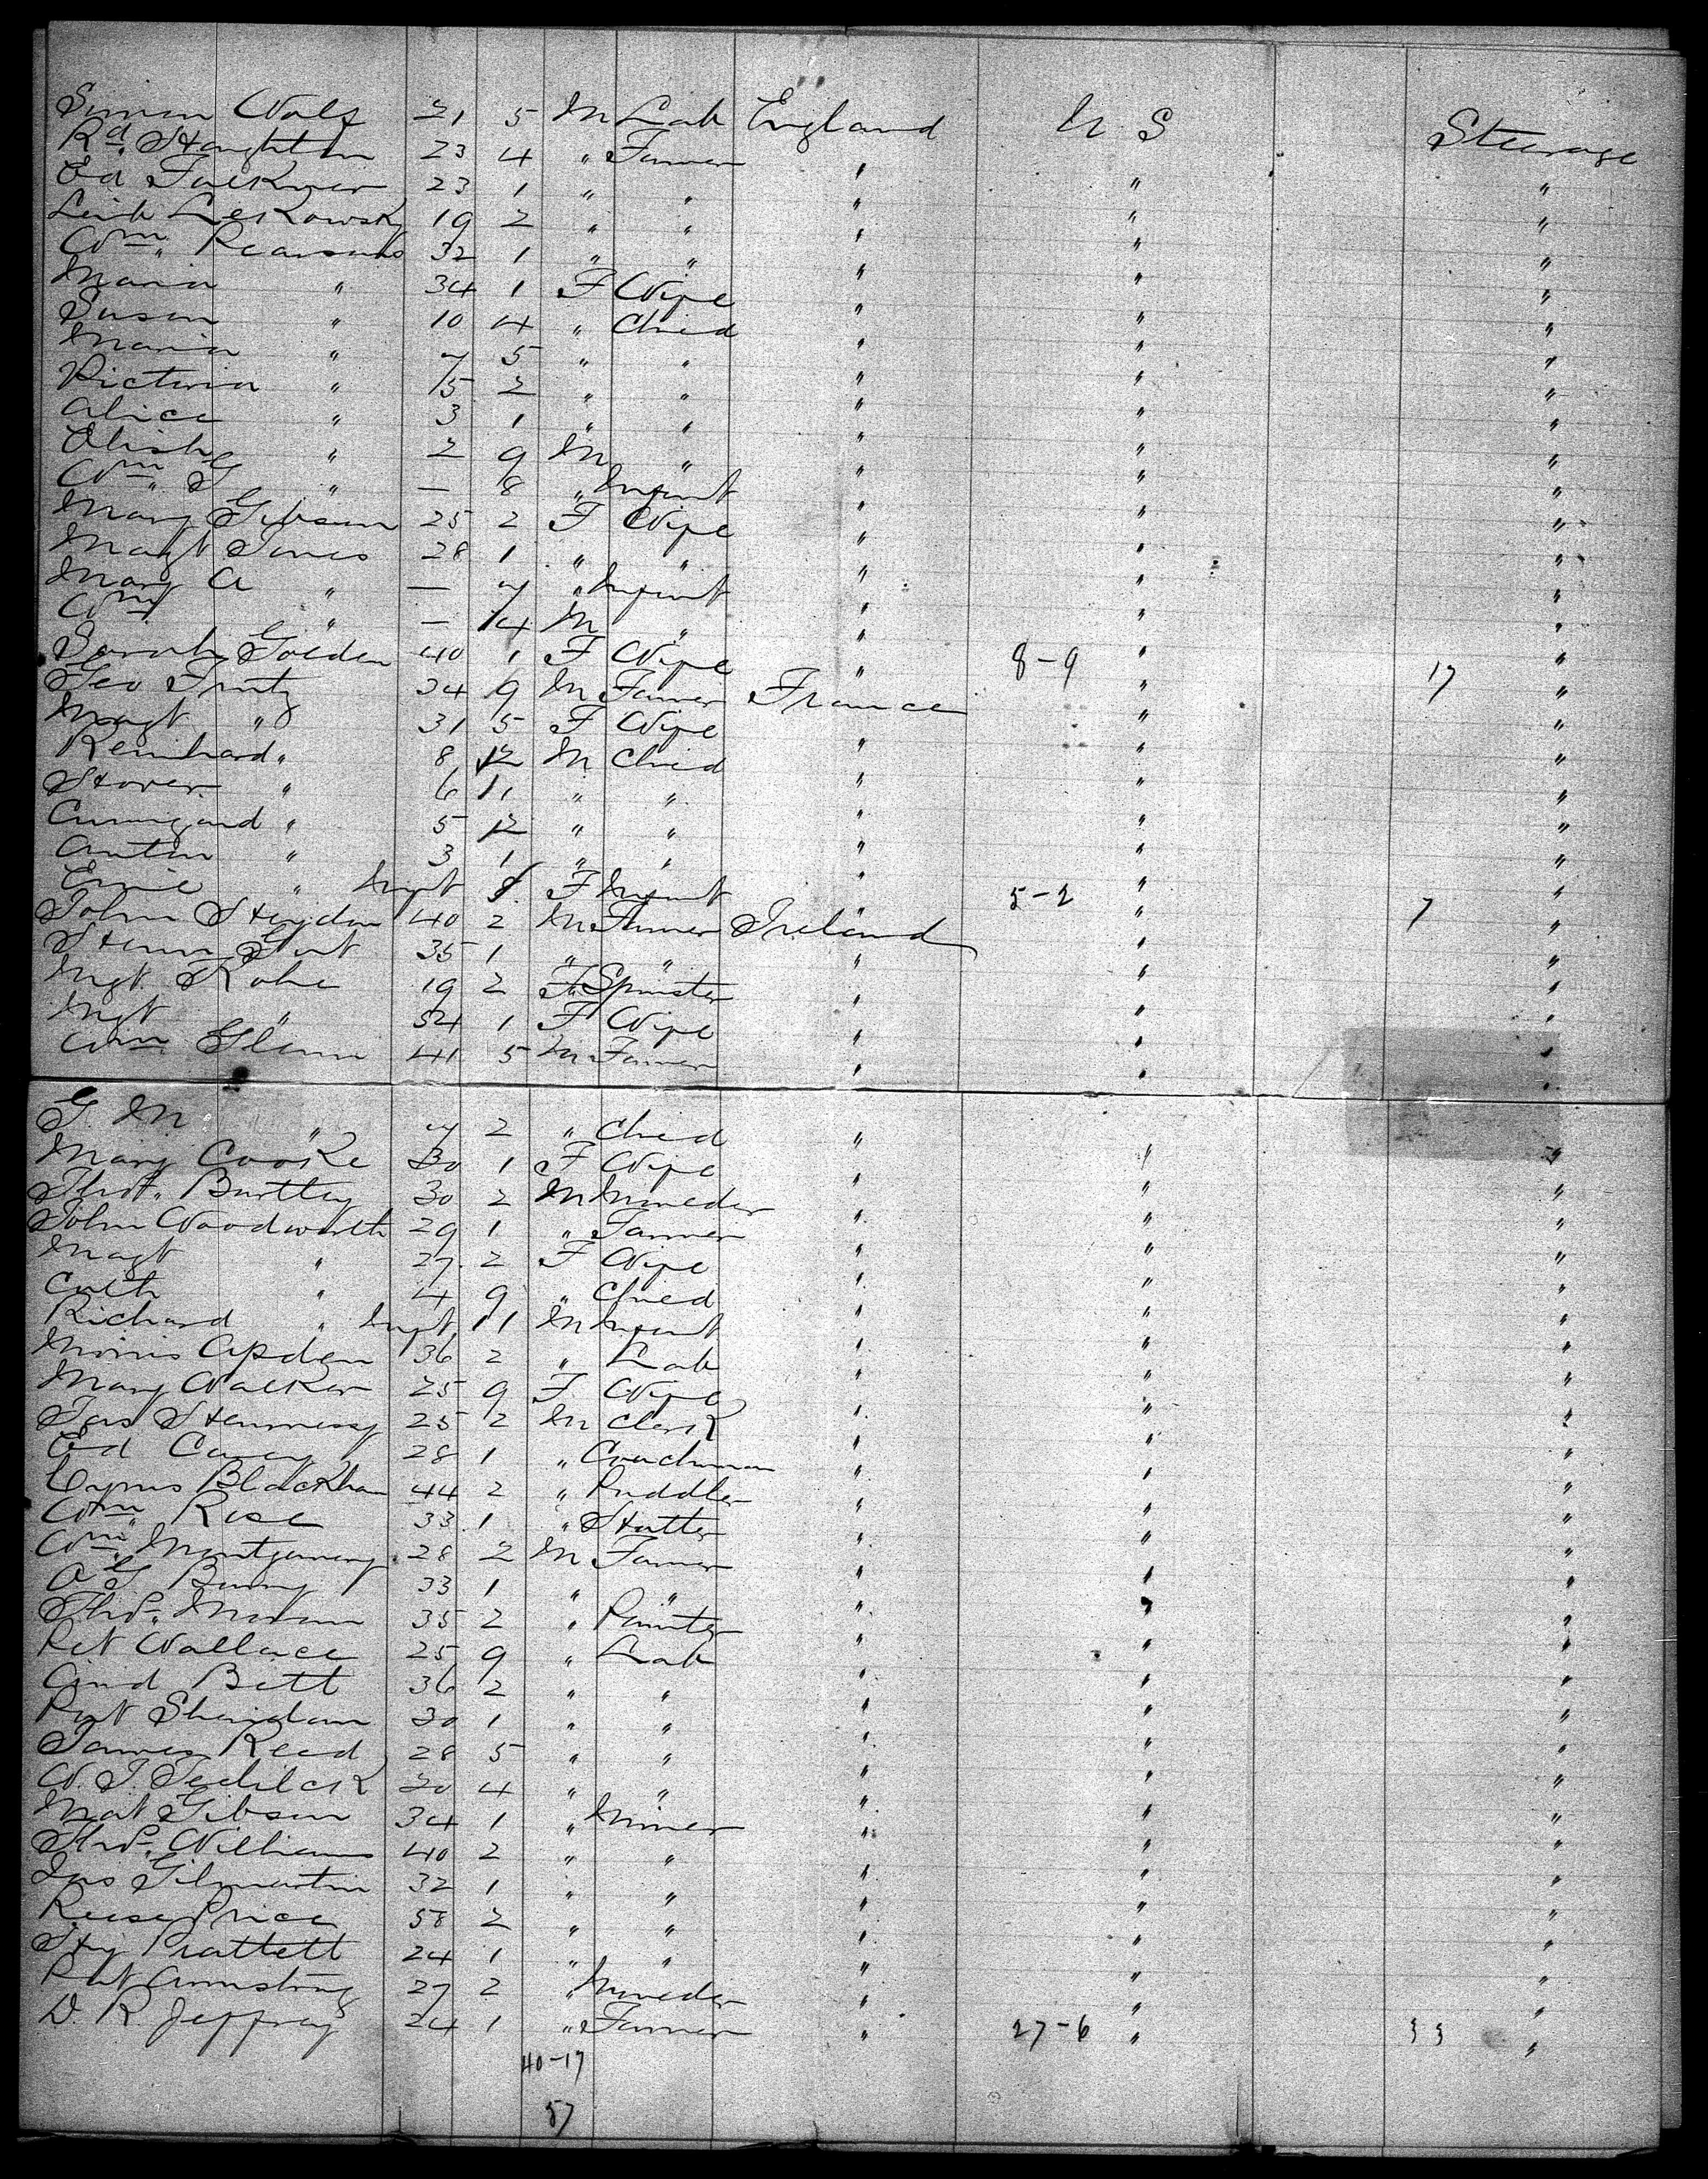 Simon Wolf 21 5 M Lab England U S Steerage
Rd. Haughton 23 4 " Farmer " " "
Ed Falkner 23 1 " " " " "
Leib Leskowsky 19 2 " " " " "
Wm. Pearsons 32 1 " " " " "
Maria " 34 1 F Wife " " "
Susan " 10 4 " Child " " "
Maria " 7 5 " " " " "
Victoria " 5 2 " " " " "
Alice " 3 1 " " " " "
Elisha " 2 9 M " " " "
Wm. G " — 8 " Infant " " "
Mary Gibson 25 2 F Wife " " "
Magt Jones 28 1 " " " " "
Mary A " — 7 " Infant " " "
Wm " — 4 M " " " "
Sarah Golden 40 1 F Wife " 8-9 " 17 "
Geo Fruitz 34 9 M Farmer France " "
Magt " 31 5 F Wife " " "
Reinhard " 8 12 M Child " " "
" 6 11 " " " " "
" 5 12 " " " " "
Anton " 3 1 " " " " "
Emil " Inft F Infant " 5-2 " 7 "
John Heydon 40 2 M Farmer Ireland " "
35 1 " " " " "
Mgt. Kohe 19 2 F Spinster " " "
Mgt " 54 1 F Wife " " "
Wm. Glenn 41 5 M Farmer " " "
G. M " 7 2 " Child " " "
Mary Cooke 30 1 F Wife " " "
Thos. Burtley 30 2 M Moulder " " "
John Woodworth 29 1 " Farmer " " "
Magt " 27 2 F Wife " " "
Cath " 4 9 " Child " " "
Richard " Inft 11 M Infant " " "
Morris Apden 36 2 " Lab " " "
Mary Walker 25 9 F Wife " " "
Jas Hennessy 25 2 M Clerk " " "
Ed Carey 28 1 " Coachman " " "
Cyrus Blackham 44 2 " Puddler " " "
Wm. Rose 33 1 " Hatter " " "
Wm. Montgomery 28 2 M Farmer " " "
A G Burny 33 1 " " " " "
Thos. Moran 35 2 " Painter " " "
Pet Wallace 25 9 " Lab " " "
Bett 36 2 " " " " "
Pat Sheridan 30 1 " " " " "
James Reed 28 5 " " " " "
W. J. Sedilck 30 4 " " " " "
Mat Gibson 34 1 " Miner " " "
Thos. Williams 40 2 " " " " "
Jas Gilmartin 32 1 " " " " "
Reese Price 58 2 " " " " "
Hy Prattett 24 1 " " " " "
Rbt Armstrong 27 2 " Moulder " " "
D. R. Jeffray 24 1 " Farmer " 27-6 " 33 "
40-17
57